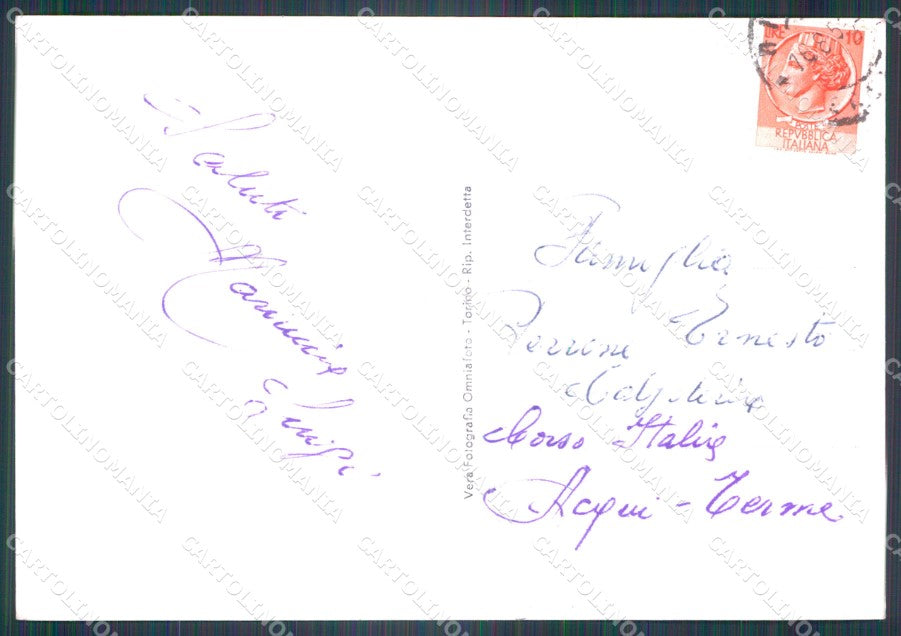 Saluti
Luigi
Vera Fotografia Omniafoto - Torino - Rip. Interdetta
LIRE 10
POSTE
REPVBBLICA
ITALIANA
Famiglia
Perrone Ernesto
Calzoleria
Corso Italia
Acqui - Terme
CARTOLINOMANIA